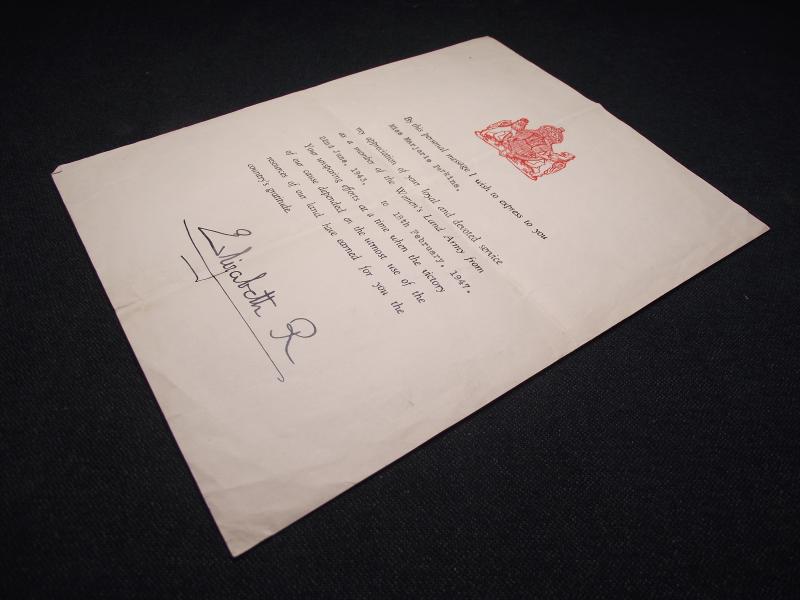 By this personal message I wish to express to you
Miss Marjorie Perkins,
my appreciation of your loyal and devoted service
as a member of the Women's Land Army from
22nd June, 1943, to 18th February, 1947.
Your unsparing efforts at a time when the victory
of our cause depended on the utmost use of the
resources of our land have earned for you the
country's gratitude.
Elizabeth R